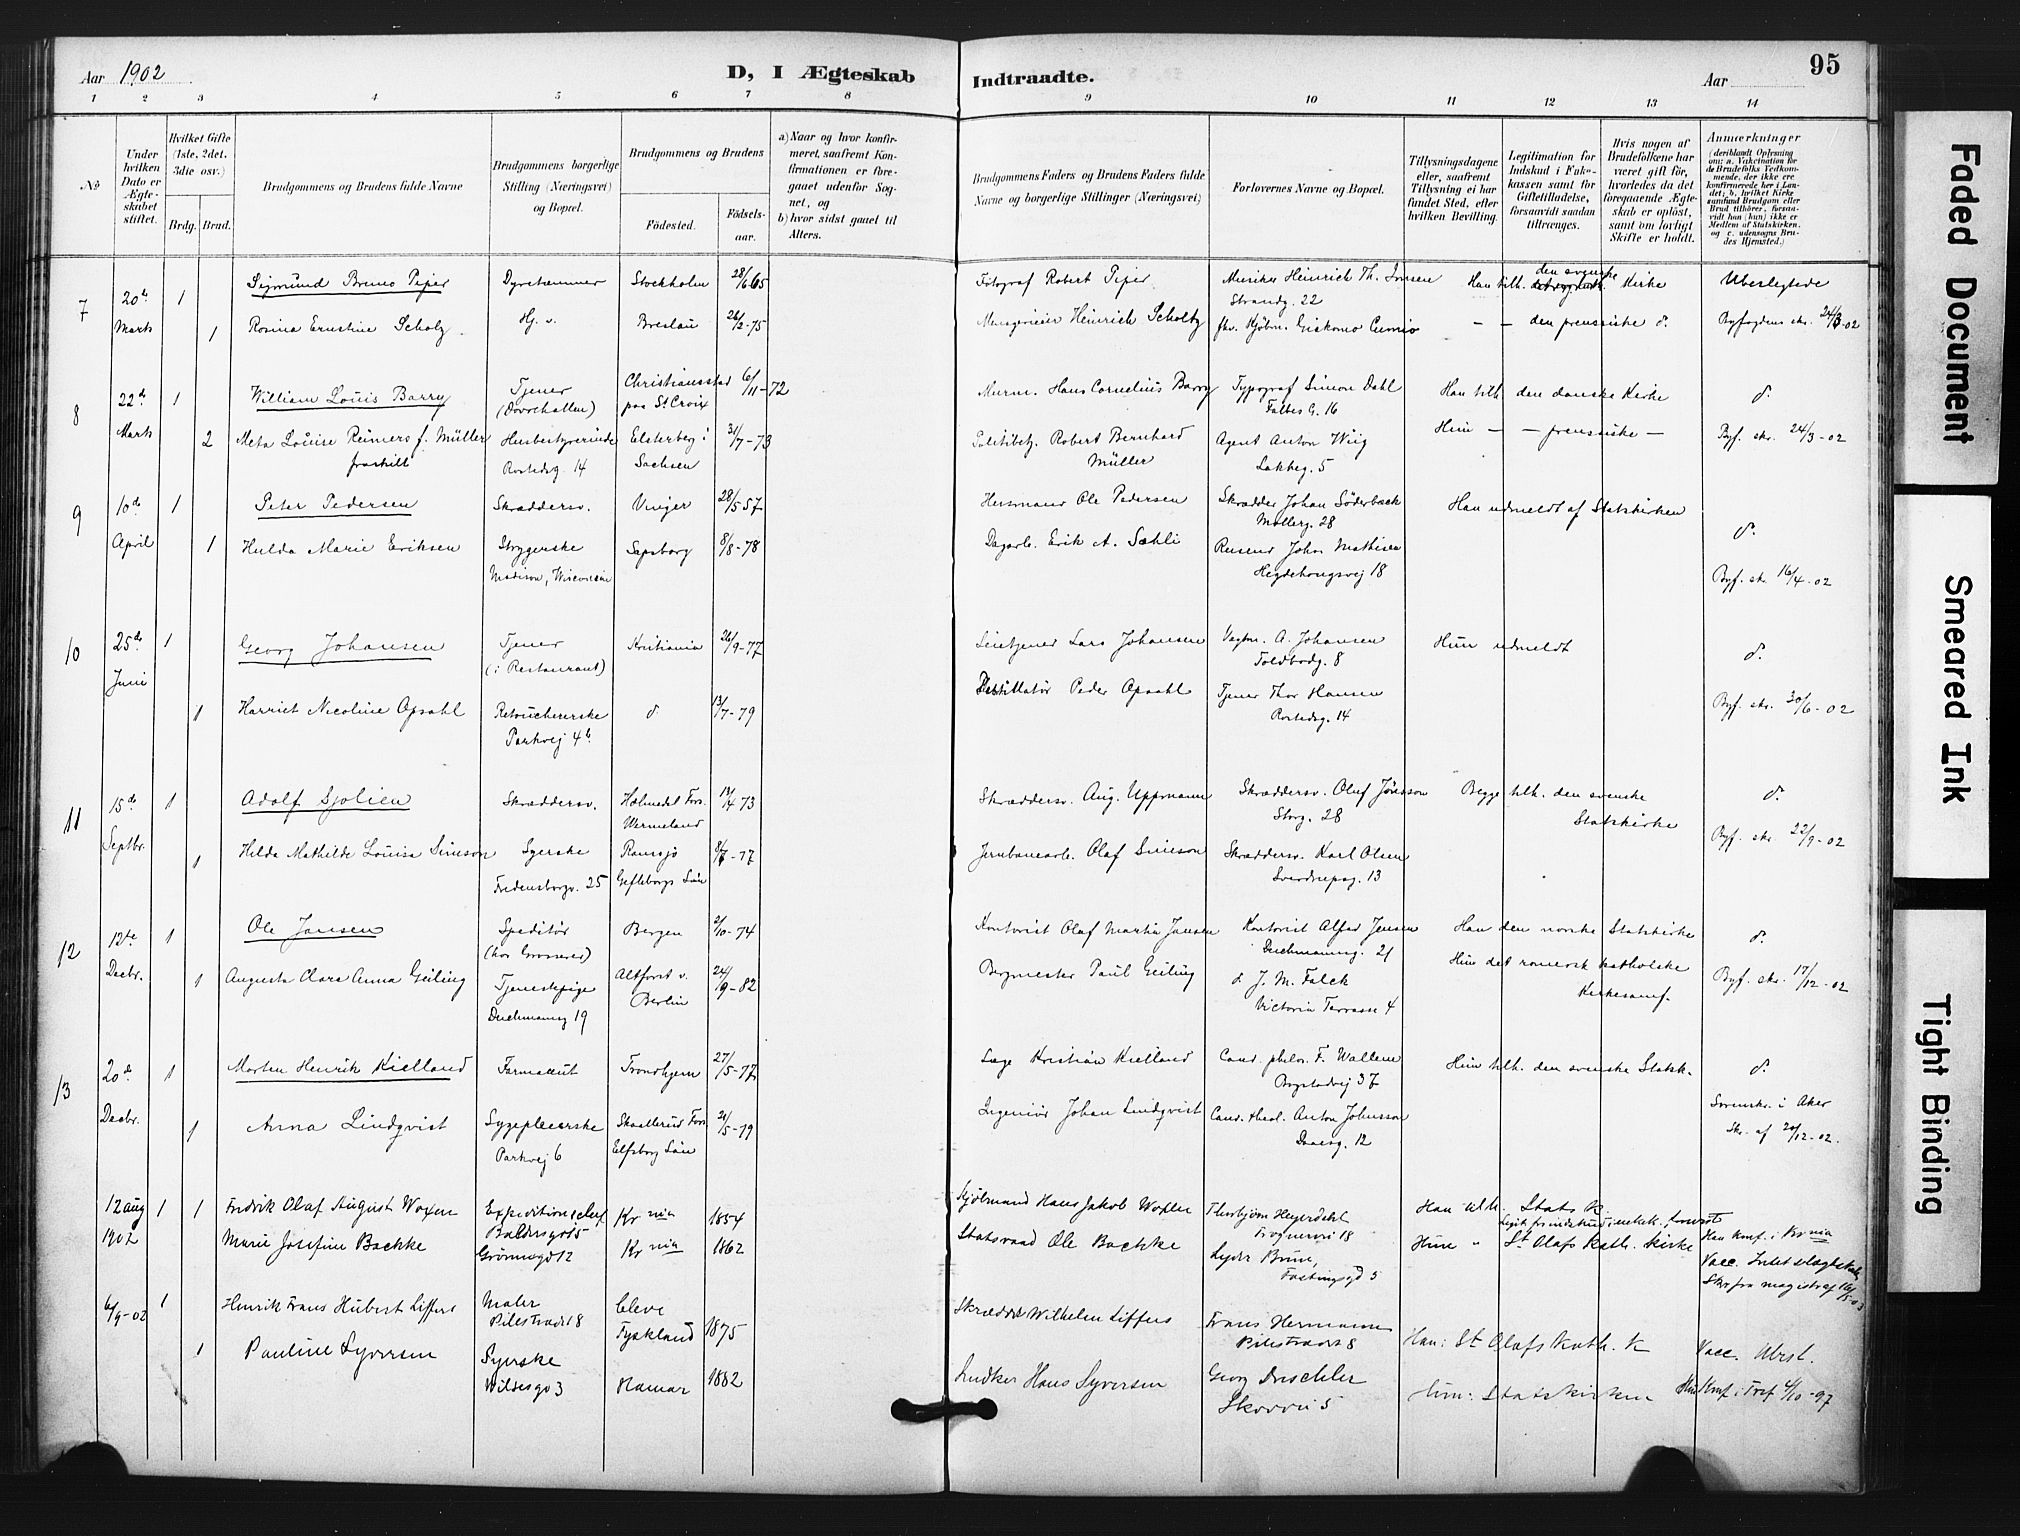 Aar 1902
D, I Ægteskab
Indtraadte.
Aar
95
1 2 3 4 5 6 7 8 9 10 11 12 13 14
No
Under hvilken Dato er Ægteskabet stiftet.
Hvilket Gifte (1ste, 2det, 3die osv.)
Brdg. Brud.
Brudgommens og Brudens fulde Navne
Brudgommens borgerlige Stilling (Næringsvei) og Bopæl.
Brudgommens og Brudens
Fødested.
Fødselsaar.
a) Naar og hvor konfirmeret, saafremt Konfirmationen er foregaaet udenfor Sognet, og
b) hvor sidst gaaet til Alters.
Brudgommens Faders og Brudens Faders fulde Navne og borgerlige Stillinger (Næringsvei)
Forlovernes Navne og Bopæl.
Tillysningsdagene eller, saafremt Tillysning ei har fundet Sted, efter hvilken Bevilling.
Legitimation for Indskud i Enkekassen samt for Giftetilladelse, forsaavidt saadan tiltrænges.
Hvis nogen af Brudefolkene har været gift før, hvorledes da det foregaaende Ægteskab er opløst, samt om lovligt Skifte er holdt.
Anmærkninger
7 20de 1 Sigmund Bruno Pijer Dyretæmmer Stockholm 28/6 65 Fotograf Robert Pijer Musiker Heinrich Th. Han tilh. den svenske Kirke Ubeslegtede
Strandg. 22
Marts 1 Rosina Ernstine Scholz Hj. v. Breslau 26/2-75 Menagerieier Heinrich Scholtz fhv. Kjøbm. Giskomo Cumio — — den preussiske d. Byfogdens skr. 24/3-02
8 22de 1 William Louis Barry Tjener Christianssted 6/11-72 Murm. Hans Cornelius Barry Typograf Simon Dahl Han tilh. den danske Kirke d.
(Dovrehallen) paa St Croix Falbes G. 16
Marts 2 Meta Louise Reimers f. Müller Husbestyrerinde Elsterberg i 31/7-73 Politibtj. Robert Bernhard Agent Anton Wiig Hun — — preussiske — Byf. skr. 24/3-02
fraskilt Rostedsg. 14 Sachsen Müller Lakkeg. 5
9 10de 1 Peter Pedersen Skræddersv. Vinger 28/5 57 Husmand Ole Pedersen Skrædder Johan Söderback Han udmeldt af Statskirken
Møllerg. 28 d.
April 1 Hulda Marie Eriksen Strygerske Sapsborg 8/8-78 Dagarb. Erik A. Sæhli Reisend. Johs. Mathisen
Madison, Wisconsin Hegdehaugsvej 18 Byf. skr. 16/4-02
10 25de 1 Georg Johansen Tjener Kristiania 26/9-77 Lars Johansen A. Johansen Hun udmeldt d.
(i Restaurant) Toldbodg. 8
Juni 1 Harriet Nicoline Opsahl Retoucherske d 13/7-79 Destillatør Peder Opsahl Tjener Thor Hansen Byf. skr. 30/6-02
Parkvej 4b Rostedsg. 14
11 15de 1 Adolf Sjolien Skræddersv. Fors. 73 Skræddersv. Aug. Uppmann Skræddersv. Oluf Jönsson Begge tilh. den svenske d.
Wermeland Storg. 28 Statskirke
Septbr. 1 Hilda Mathilde Louisa Simson Syerske Ramsjö -77 Jernbanearb. Olaf Simson Skræddersv. Karl Olsen Byf. skr 22/9-02
Fredensborgv. 25 Gefleborgs Län Sverdrupsg. 13
12 12te 1 Ole Jansen Speditör Bergen 2/10-74 Kontorist Olaf Martin Jansen Kontorist Alfred Jensen Han den norske Statskirke d.
(hos Grosserer) Deichmansg. 21
Decbr. 1 Augusta Clara Anna Geiling Tjenestepige Altforst v. 24/9-82 Bergmester Paul Geiling d. J. M. Falck Hun det romersk katholske Byf. skr. 17/12-02
Deichmansg 19 Berlin Victoria Terrasse 4 Kirkesamf.
13 20de 1 Morten Henrik Kielland Farmaceut Trondhjem 27/5-77 Læge Kristian Kielland Cand. philos. F. Wallem Hun tilh. den svenske Statsk. d.
Bogstadvej 37
Decbr. 1 Anna Lindqvist Sygepleierske Skållerud Fors. 21/5-79 Ingeniør Johan Lindqvist Cand. theol. Anton Johnsson Sorenskr. i Aker
Parkvej 6 Elfsborg Län Daaesg. 12 Skr. af 20/12-02.
12 aug 1 1 Fredrik Olaf August Woxen Expeditionschef Kr nia 1854 Kjøbmand Hans Jakob Woxen Thorbjørn Heyerdahl Han tilh. Stats K.
Baldersgd 5 Frognervei 18
1902 Marie Josefine Bachke Grønnegd 12 Kr nia 1862 Statsraad Ole Bachke Lyder Brun, Hun " St Olafs Kath. Kirke Han Konf. i Kr nia
Fastingsgd 5 Vacc.
Skr fra magistr af
6/9-02 1 Henrik Frans Hubert Liffers Maler Cleve 1875 Skrædder Wilhelm Liffers Frans Hermann Han: St Olafs Kath. K
Pilestradet 8 Tyskland Pilestradet 8
1 Pauline Syversen Syerske 1882 Hans Syversen Georg Drischler Hun: Statskirken Vacc. Ubesl.
Wilsesgd 3 Hamar Skovvei 5 Hun Konf. i Tref 4/10-97
Faded Document
Smeared Ink
Tight Binding